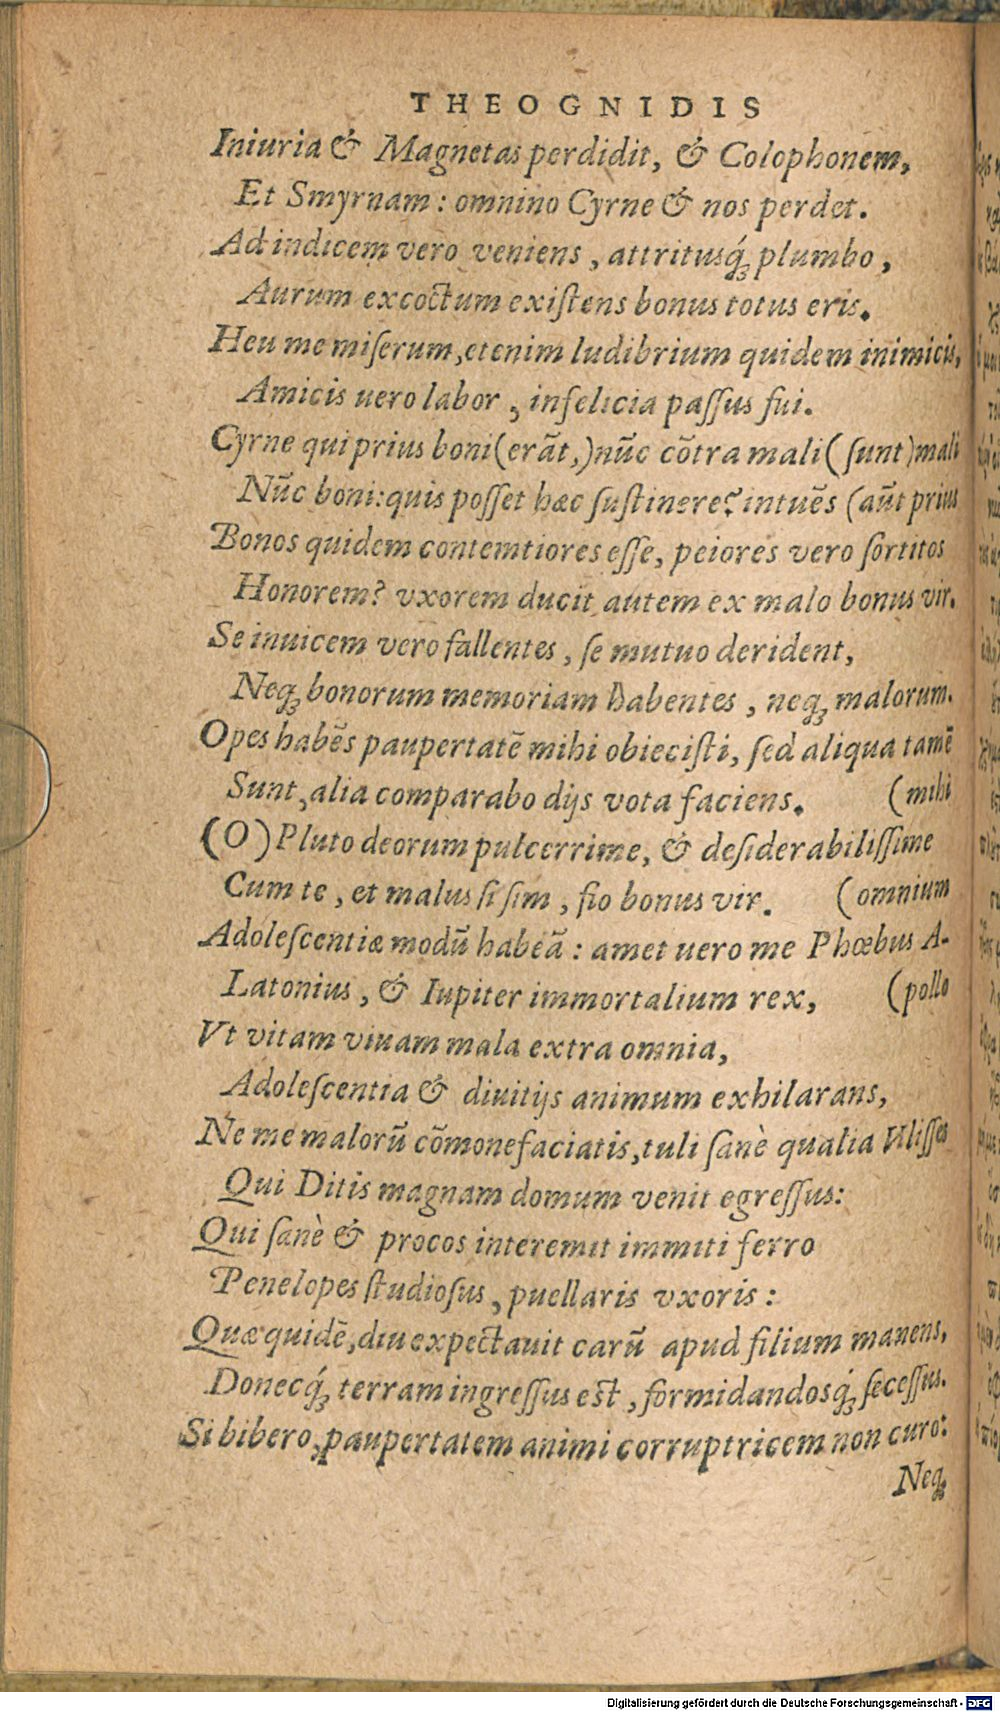 THEOGNIDIS
Iniuria & Magnetas perdidit, & Colophonem,
Et Smyrnam: omnino Cyrne & nos perdet.
Ad indicem vero veniens, attritusq́ꝫ plumbo,
Aurum excoctum existens bonus totus eris.
Heu me miserum, etenim ludibrium quidem inimicis,
Amicis uero labor, infelicia passus fui.
Cyrne qui prius boni (erãt,) nũc cõtra mali (sunt) mali
Nũc boni: quis posset hæc sustinere? intuẽs (aũt prius
Bonos quidem contemtiores esse, peiores vero sortitos
Honorem? vxorem ducit autem ex malo bonus vir.
Se inuicem vero fallentes, se mutuo derident,
Neqꝫ bonorum memoriam habentes, neqꝫ malorum.
Opes habẽs paupertatẽ mihi obiecisti, sed aliqua tamẽ
Sunt, alia comparabo dijs vota faciens. (mihi
(O) Pluto deorum pulcerrime, & desiderabilissime
Cum te, et malus si sim, fio bonus vir. (omnium
Adolescentiæ modũ habeã: amet uero me Phœbus A-
Latonius, & Iupiter immortalium rex, (pollo
Vt vitam viuam mala extra omnia,
Adolescentia & diuitijs animum exhilarans,
Ne me malorũ cõmonefaciatis, tuli sanè qualia Ulisses
Qui Ditis magnam domum venit egressus:
Qui sanè & procos interemit immiti ferro
Penelopes studiosus, puellaris vxoris:
Quæ quidẽ, diu expectauit carũ apud filium manens,
Donecq́ꝫ terram ingressus est, formidandosq́ꝫ secessus.
Si bibero, paupertatem animi corruptricem non curo:
Neqꝫ
Digitalisierung gefördert durch die Deutsche Forschungsgemeinschaft - DFG